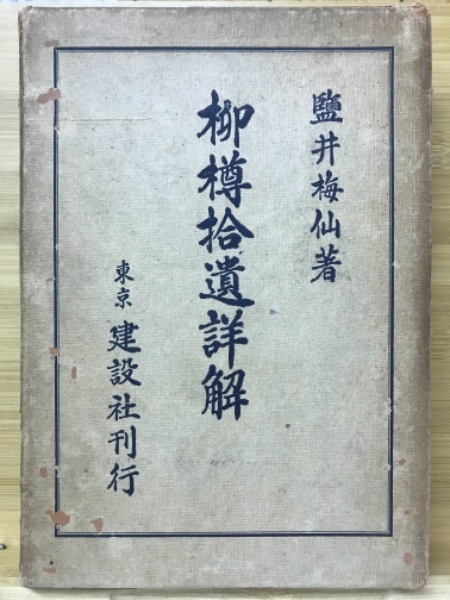 鹽井梅仙著
柳樽拾遺詳解
東京 建設社刊行